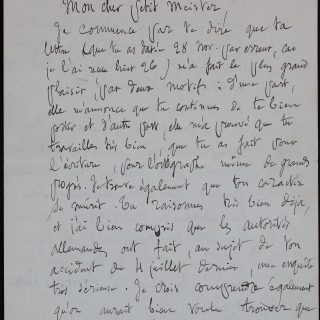 Mon cher petit Meister
Je commence par te dire que ta
lettre (que tu as datée 28 Nov. par erreur, car
je l'ai reçue hier 26) m'a fait le plus grand
plaisir, par deux motifs : d'une part,
elle m'annonce que tu continues de te bien
porter et d'autre part, elle m'a prouvé que tu
travailles très bien, que tu as fait pour
l'écriture, pour l'orthographe même de grands
progrès. Je trouve également que ton caractère
se mûrit. Tu raisonnes très bien déjà,
et j'ai bien compris que les autorités
allemandes ont fait, au sujet de ton
accident du 4 juillet dernier, une enquête
très sérieuse. Je crois comprendre également
qu'on aurait bien voulu trouver que